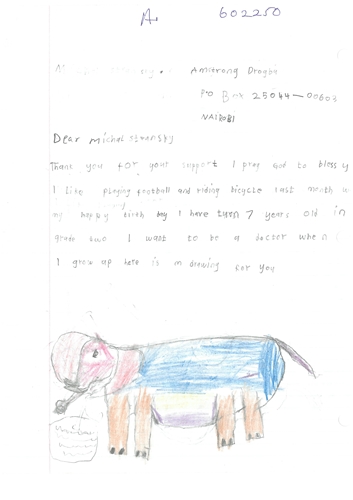 A. 602250
Amstrong Drogba
PO Box 25044-00603
NAIROBI
Dear michal
Thank you for your support I pray God to bless
I like playing football and riding bicycle last month
my happy birth day I have turn 7 years old in
grade two I want to be a doctor when
I grow up here is m drawing for you